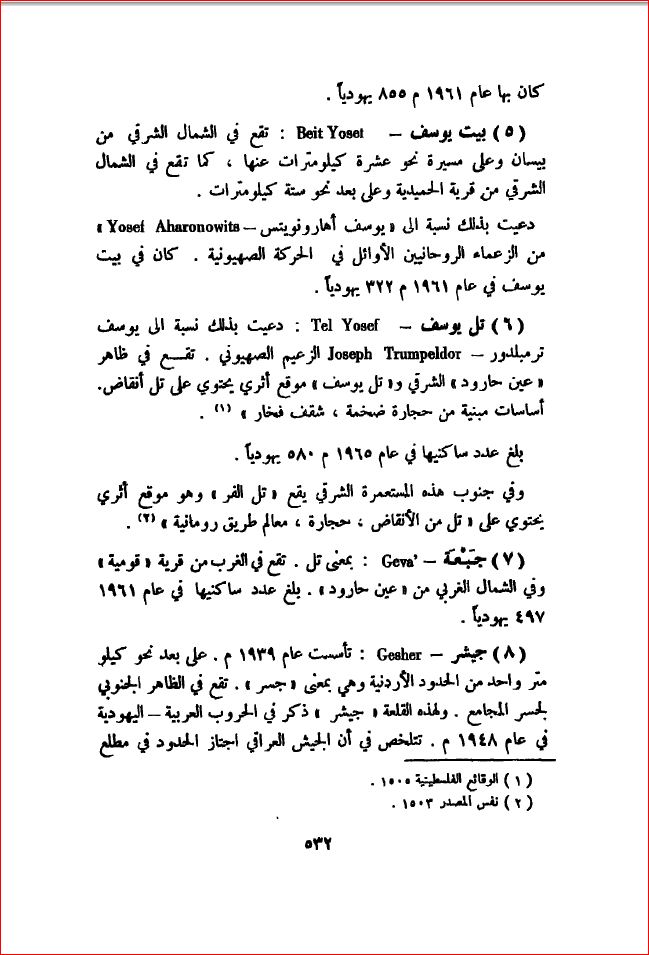 كان بها عام ١٩٦١ م ٨٥٥ يهودياً .
( ٥ ) بيت يوسف — Beit Yosef : تقع في الشمال الشرقي من
بيسان وعلى مسيرة نحو عشرة كيلومترات عنها ، كما تقع في الشمال
الشرقي من قرية الحميدية وعلى بعد نحو ستة كيلومترات .
دعيت بذلك نسبة الى « يوسف أهارونويتس — Yosef Aharonowits »
من الزعماء الروحانيين الأوائل في الحركة الصهيونية . كان في بيت
يوسف في عام ١٩٦١ م ٣٢٢ يهودياً .
( ٦ ) تل يوسف — Tel Yosef : دعيت بذلك نسبة الى يوسف
ترمبلدور — Joseph Trumpeldor الزعيم الصهيوني . تقـــع في ظاهر
« عين حارود » الشرقي و« تل يوسف » موقع أثري يحتوي على تل أنقاض.
أساسات مبنية من حجارة ضخمة ، شقف فخار » (١) .
بلغ عدد ساكنيها في عام ١٩٦٥ م ٥٨٠ يهودياً .
وفي جنوب هذه المستعمرة الشرقي يقع « تل الفر » وهو موقع أثري
يحتوي على « تل من الأنقاض ، حجارة ، معالم طريق رومانية » (٢) .
( ٧ ) جَبْعَة — Geva' : بمعنى تل . تقع في الغرب من قرية « قومية »
وفي الشمال الغربي من « عين حارود » . بلغ عدد ساكنيها في عام ١٩٦١
٤٩٧ يهودياً .
( ٨ ) جيشر — Gesher : تأسست عام ١٩٣٩ م . على بعد نحو كيلو
متر واحد من الحدود الأردنية وهي بمعنى « جسر » . تقع في الظاهر الجنوبي
لجسر المجامع . ولهذه القلعة « جيشر » ذكر في الحروب العربية — اليهودية
في عام ١٩٤٨ م . تتلخص في أن الجيش العراقي اجتاز الحدود في مطلع
( ١ ) الوقائع الفلسطينية ١٥٠٥ .
( ٢ ) نفس المصدر ١٥٠٣ .
٥٣٢